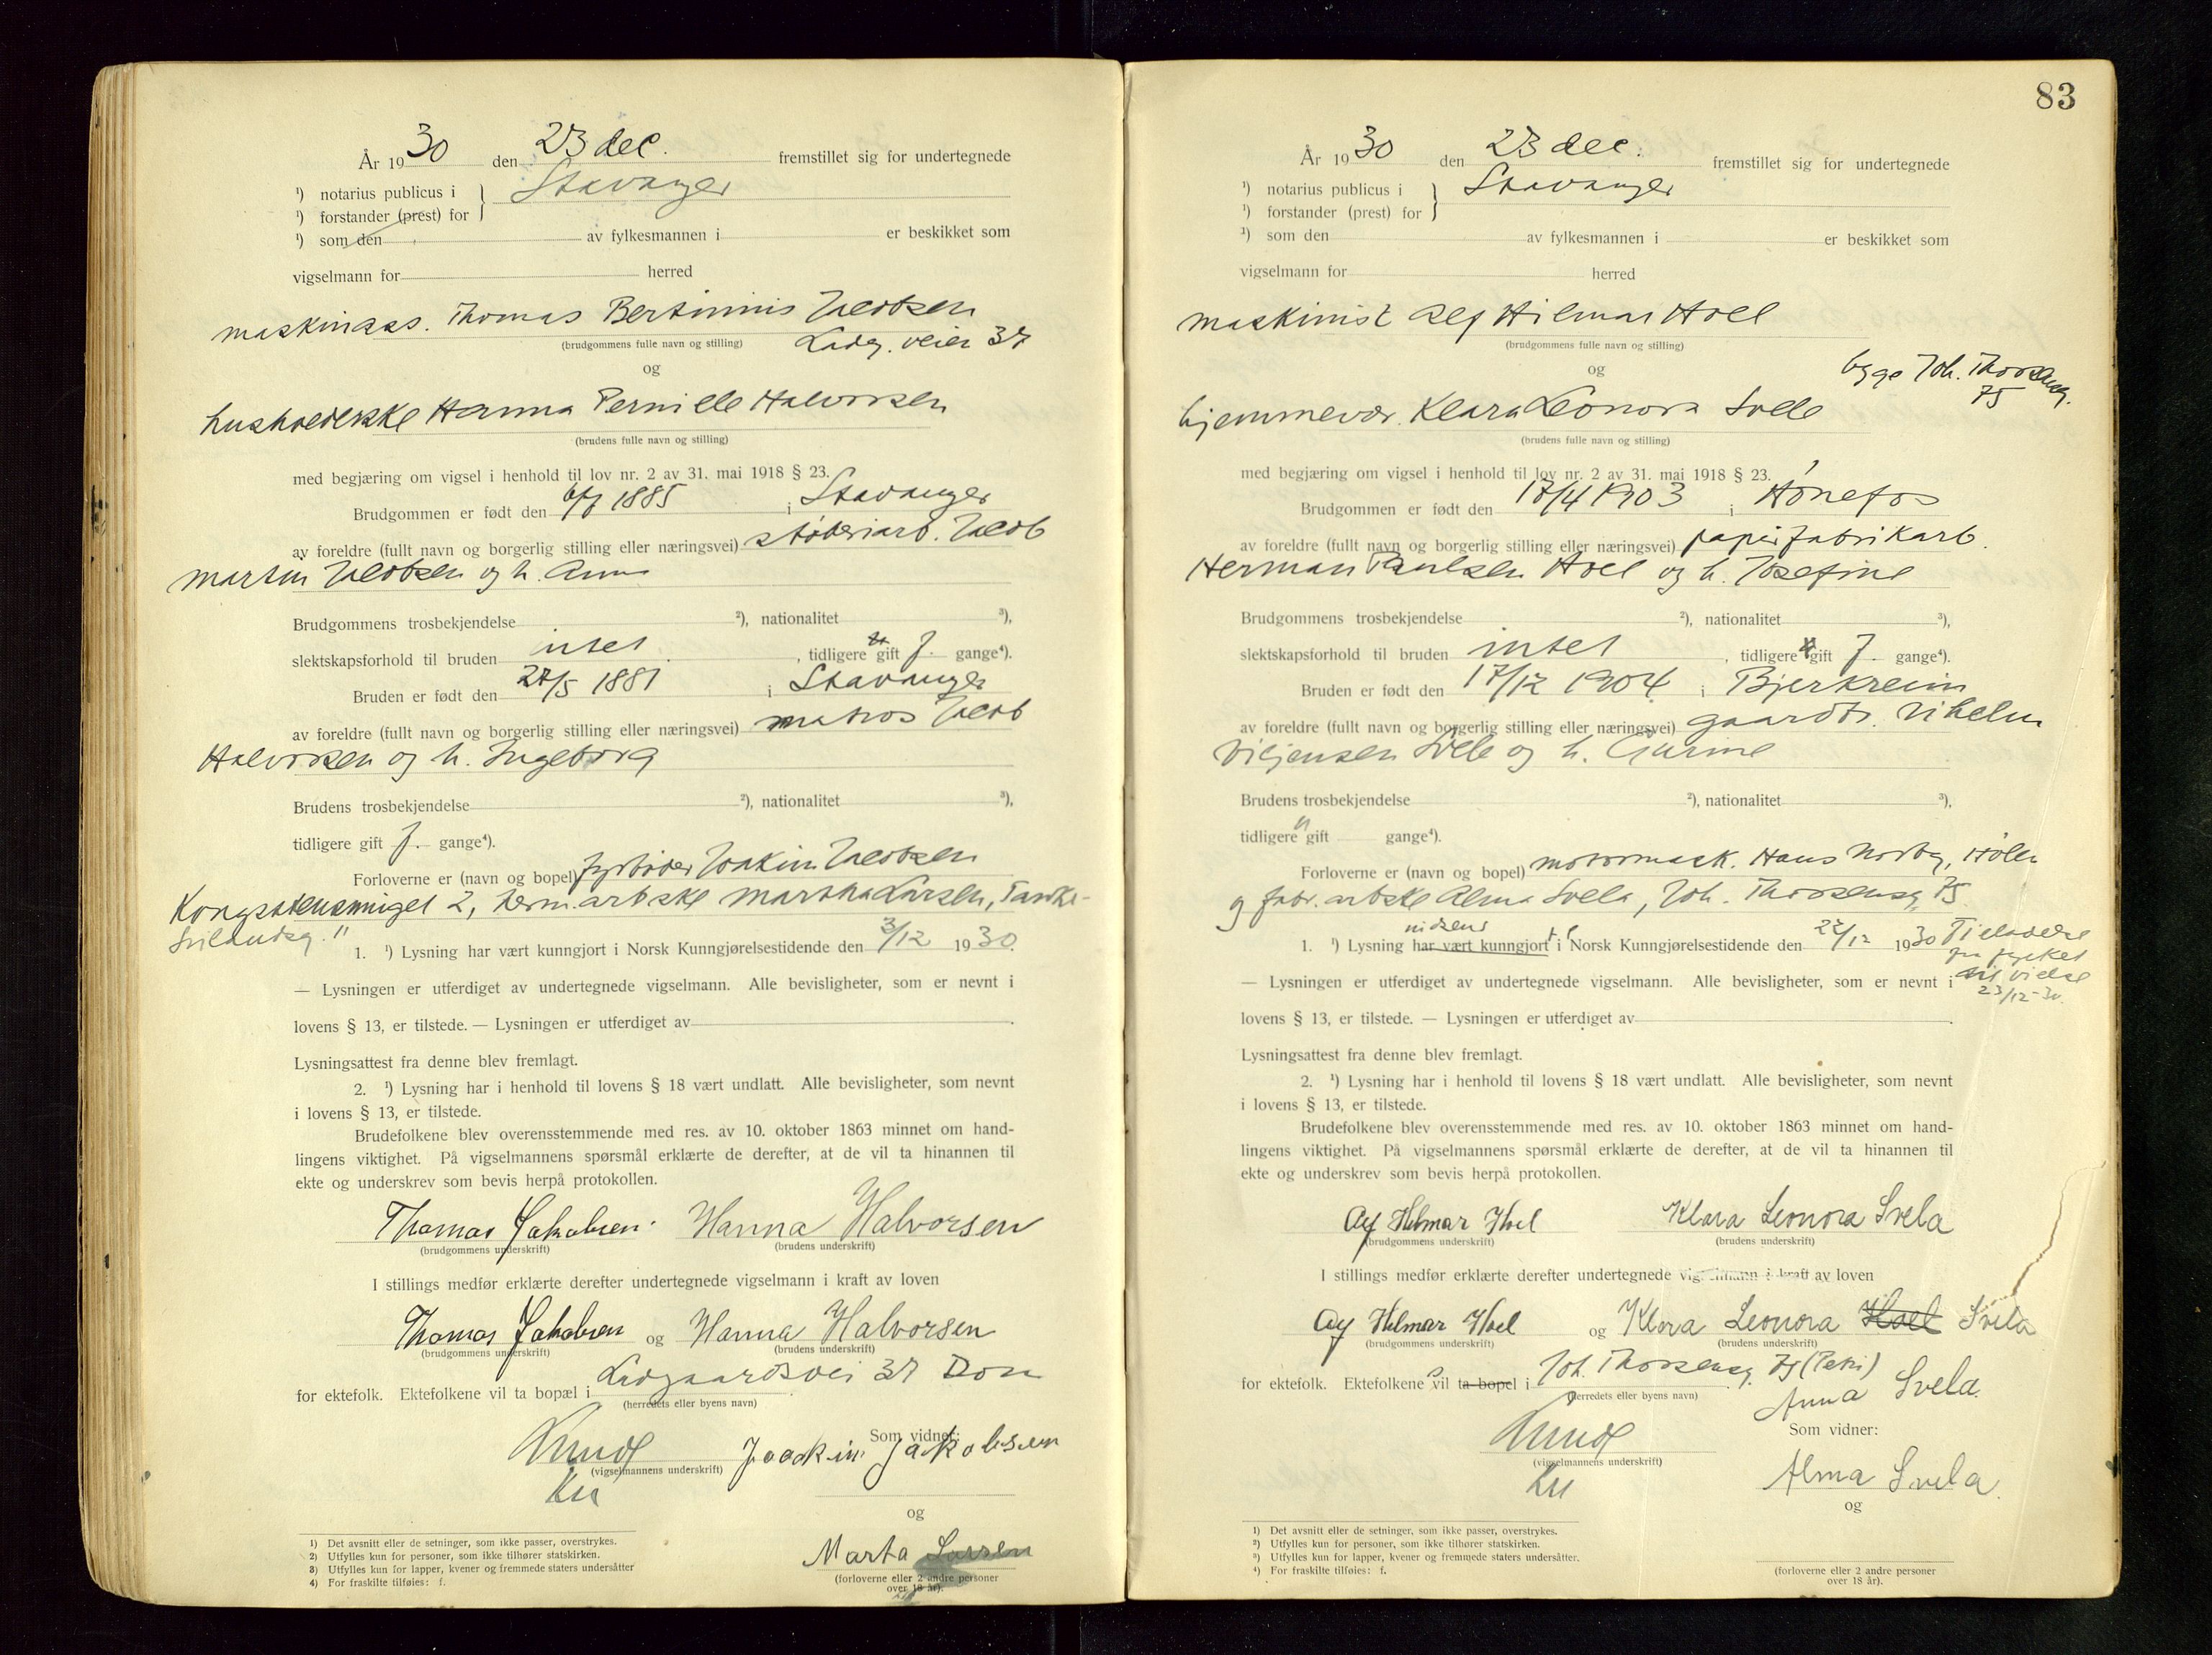 År 1930 den 23 dec. fremstillet sig for undertegnede
¹) notarius publicus i } Stavanger
¹) forstander (prest) for
¹) som den av fylkesmannen i er beskikket som
vigselmann for herred
maskinass. Thomas Bertinius Jacobsen
(brudgommens fulle navn og stilling) Ladg. veien 37
og
husholderske Hanna Pernille Halvorsen
(brudens fulle navn og stilling)
med begjæring om vigsel i henhold til lov nr. 2 av 31. mai 1918 § 23.
Brudgommen er født den 1885 i Stavanger
av foreldre (fullt navn og borgerlig stilling eller næringsvei) støberiarb. Jacob
Martin Jacobsen og h. Anna
Brudgommens trosbekjendelse ²), nationalitet ³),
slektskapsforhold til bruden intet, tidligere gift f. gange⁴).
Bruden er født den 27/5 1881 i Stavanger
av foreldre (fullt navn og borgerlig stilling eller næringsvei) matros Jacob
Halvorsen og h. Ingeborg
Brudens trosbekjendelse ²), nationalitet ³),
tidligere gift f. gange⁴).
Forloverne er (navn og bopel) fyrbøder Joakim Jacobsen
Kongsteensmuget 2, herm.arbske Martha Larsen, Taske-
Svilandsg. 11
1. ¹) Lysning har vært kunngjort i Norsk Kunngjørelsestidende den 3/12 1930.
— Lysningen er utferdiget av undertegnede vigselmann. Alle bevisligheter, som er nevnt i
lovens § 13, er tilstede. — Lysningen er utferdiget av .
Lysningsattest fra denne blev fremlagt.
2. ¹) Lysning har i henhold til lovens § 18 vært undlatt. Alle bevisligheter, som nevnt
i lovens § 13, er tilstede.
Brudefolkene blev overensstemmende med res. av 10. oktober 1863 minnet om hand-
lingens viktighet. På vigselmannens spørsmål erklærte de derefter, at de vil ta hinannen til
ekte og underskrev som bevis herpå protokollen.
Thomas Jakobsen Hanna Halvorsen
(brudgommens underskrift) (brudens underskrift)
I stillings medfør erklærte derefter undertegnede vigselmann i kraft av loven
Thomas Jakobsen og Hanna Halvorsen
(brudgommens underskrift) (brudens underskrift)
for ektefolk. Ektefolkene vil ta bopæl i Ladgaardsvei 37
(herredets eller byens navn)
Som vidner:
Joackim Jackobsen
(vigselmannens underskrift)
og
Marta Larsen
(forloverne eller 2 andre personer
over 18 år).
1) Det avsnitt eller de setninger, som ikke passer, overstrykes.
2) Utfylles kun for personer, som ikke tilhører statskirken.
3) Utfylles kun for lapper, kvener og fremmede staters undersåtter
4) For fraskilte tilføies: f.
83
År 1930 den 23 dec. fremstillet sig for undertegnede
¹) notarius publicus i } Stavanger
¹) forstander (prest) for
¹) som den av fylkesmannen i er beskikket som
vigselmann for herred
maskinist Alf Hilmar Hoel
(brudgommens fulle navn og stilling)
og begge Joh. Thorsensg.
75
hjemmevær. Klara Leonora Svele
(brudens fulle navn og stilling)
med begjæring om vigsel i henhold til lov nr. 2 av 31. mai 1918 § 23.
Brudgommen er født den 17/4 1903 i Hönefos
av foreldre (fullt navn og borgerlig stilling eller næringsvei) papirfabrikarb.
Herman Paulsen Hoel og h. Josefine
Brudgommens trosbekjendelse ²), nationalitet ³),
slektskapsforhold til bruden intet, tidligere gift f. gange⁴).
Bruden er født den 17/12 1904 i Bjerkreim
av foreldre (fullt navn og borgerlig stilling eller næringsvei) gaardbr. Vihelm
Svele og h. Gurine
Brudens trosbekjendelse ²), nationalitet ³),
tidligere gift gange⁴).
Forloverne er (navn og bopel) motormask. Hans Norby, Hölen
og fabr. arbske Alma Svela, Joh. Thorsensg. 75
1. ¹) Lysning har vært kunngjort i Norsk Kunngjørelsestidende den 22/12 1930 Tilladelse
fra fylket
til vielse
23/12-30.
— Lysningen er utferdiget av undertegnede vigselmann. Alle bevisligheter, som er nevnt i
lovens § 13, er tilstede. — Lysningen er utferdiget av .
Lysningsattest fra denne blev fremlagt.
2. ¹) Lysning har i henhold til lovens § 18 vært undlatt. Alle bevisligheter, som nevnt
i lovens § 13, er tilstede.
Brudefolkene blev overensstemmende med res. av 10. oktober 1863 minnet om hand-
lingens viktighet. På vigselmannens spørsmål erklærte de derefter, at de vil ta hinannen til
ekte og underskrev som bevis herpå protokollen.
Alf Hilmar Hoel Klara Leonora Svela
(brudgommens underskrift) (brudens underskrift)
I stillings medfør erklærte derefter undertegnede vigselmann i kraft av loven
Alf Hilmar Hoel og Klara Leonora Hoel Svela
(brudgommens underskrift) (brudens underskrift)
for ektefolk. Ektefolkene vil ta bopel i Joh. Thorsensg. 75 (Petri)
(herredets eller byens navn)
Anna Svela.
Som vidner:
(vigselmannens underskrift)
Alma Svela.
og
(forloverne eller 2 andre personer
over 18 år).
1) Det avsnitt eller de setninger, som ikke passer, overstrykes.
²) Utfylles kun for personer, som ikke tilhører statskirken.
³) Utfylles kun for lapper, kvener og fremmede staters undersåtter.
⁴) For fraskilte tilføies: f.